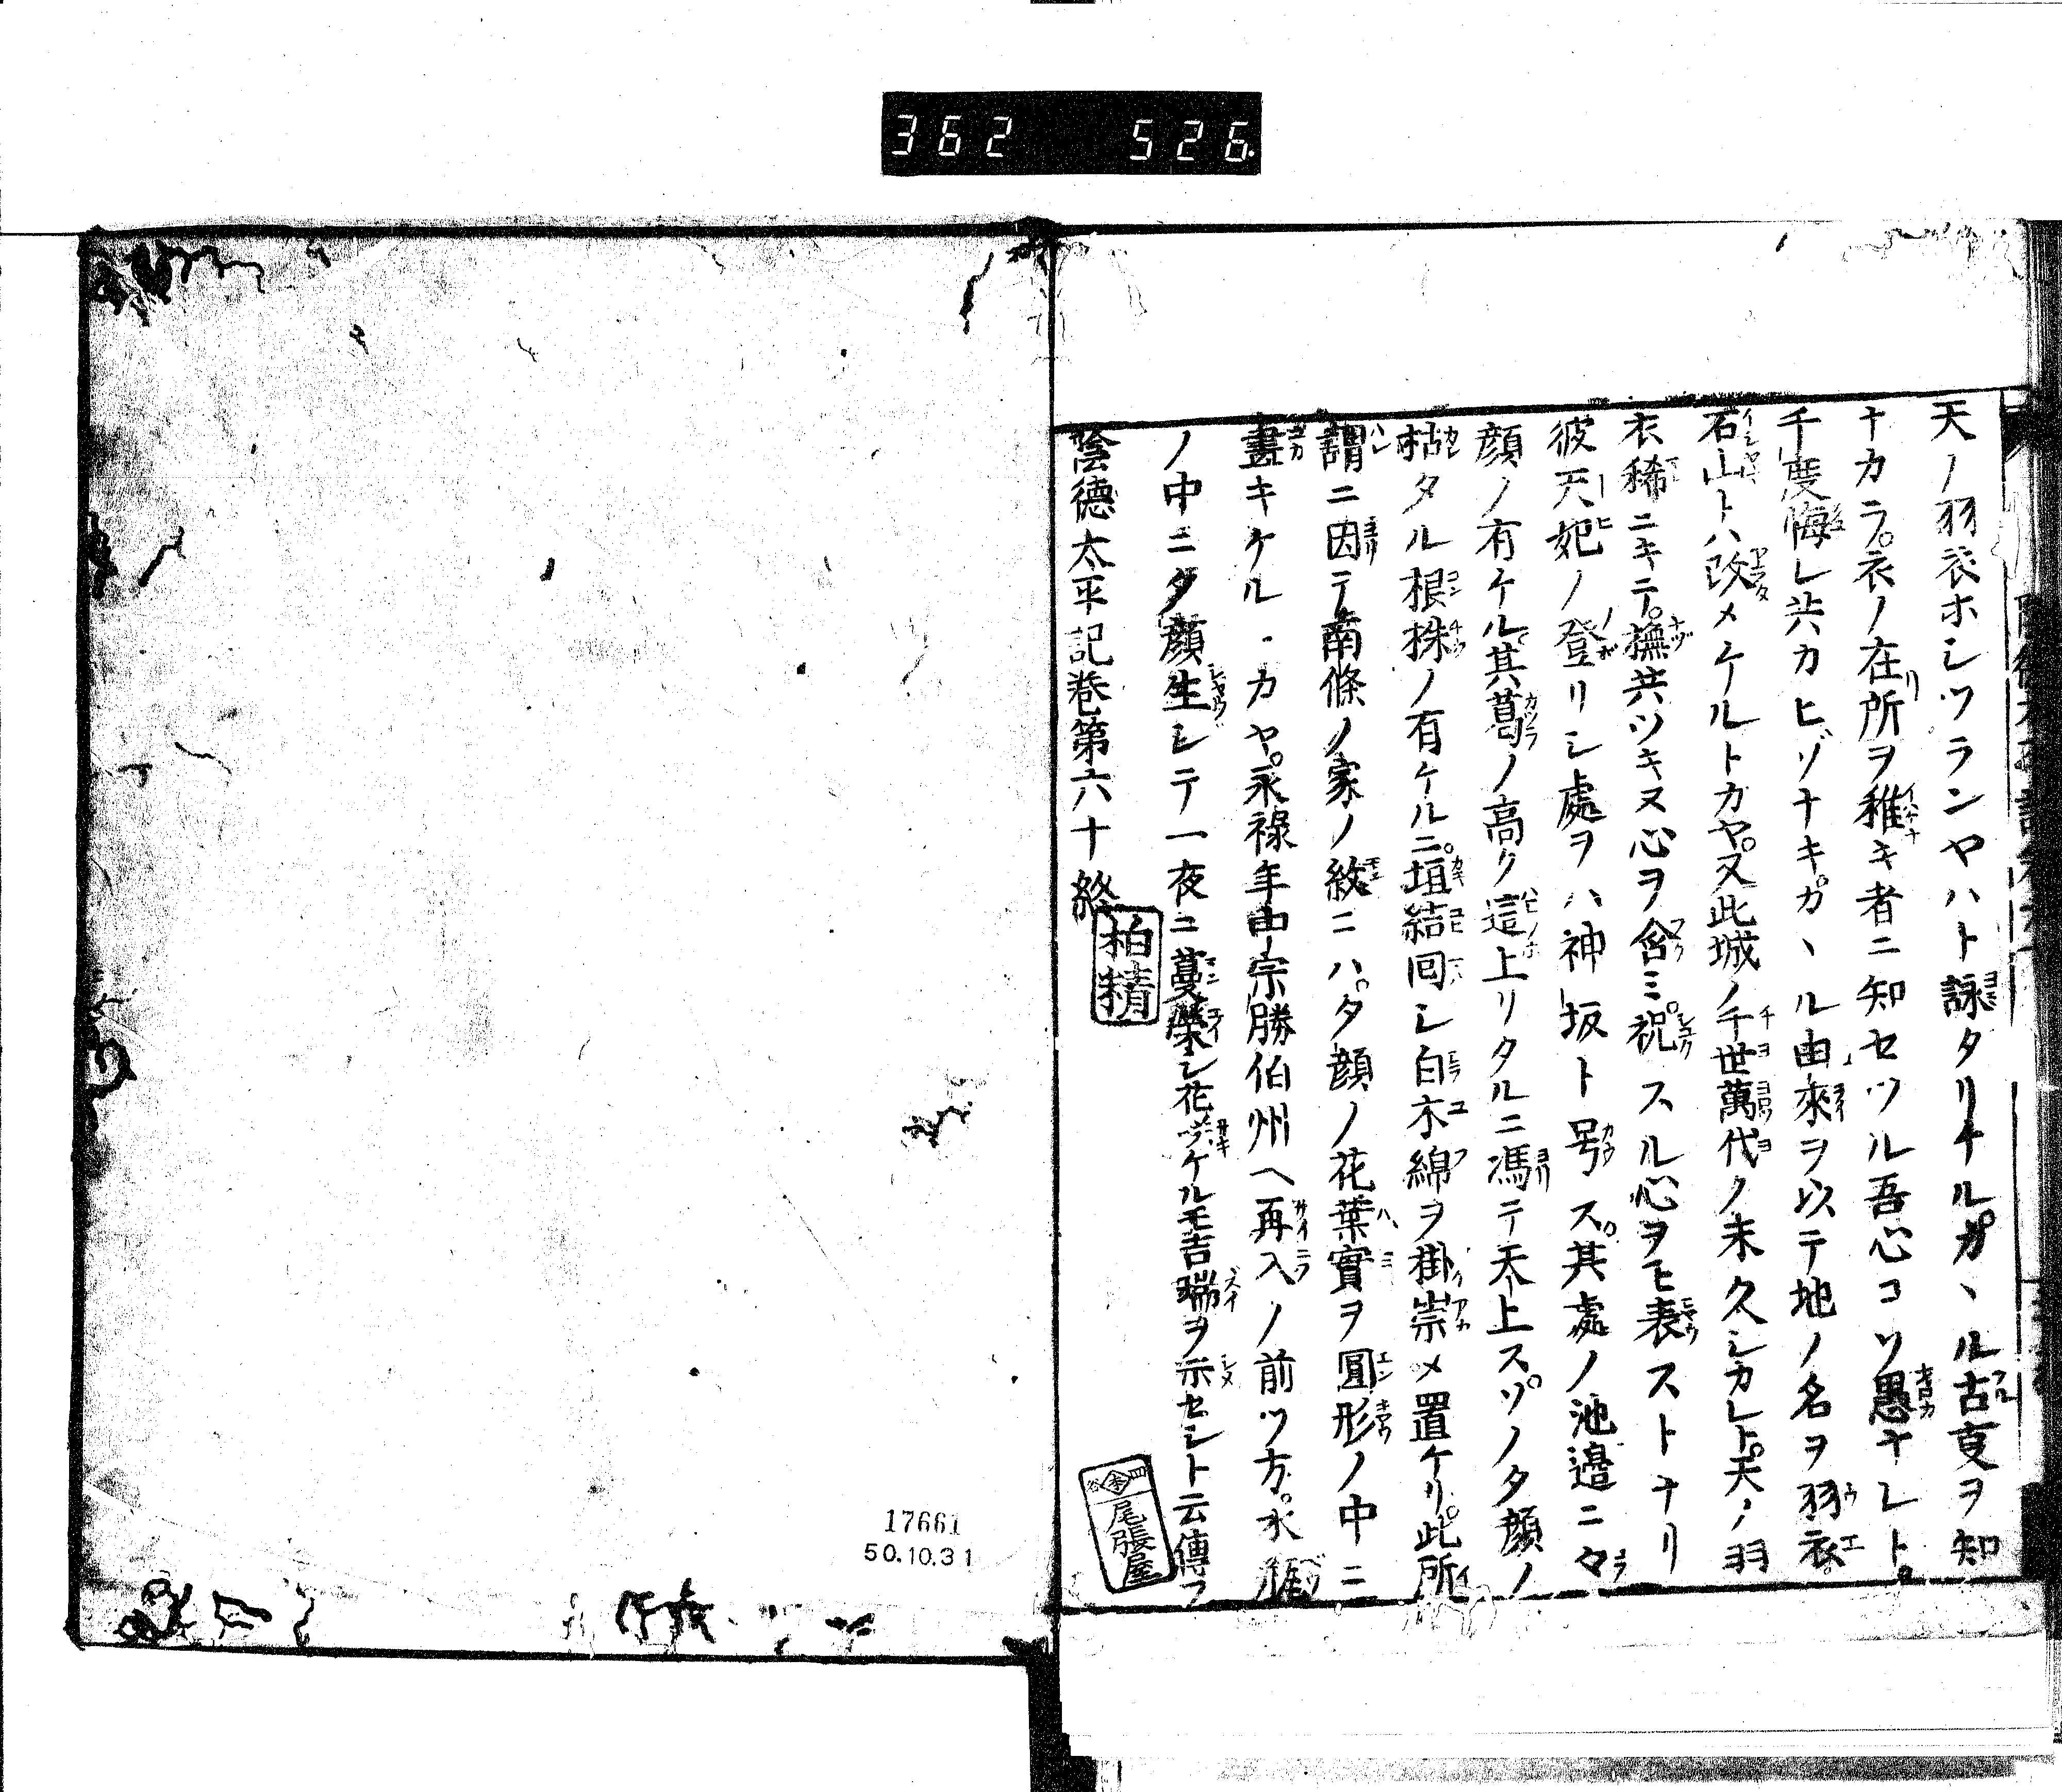 362 526
天ノ羽衣ホシツランヤハト詠タリケルガヽル古夏ヲ知
ナカラ。衣ノ在所ヲ稚キ者ニ知セツル吾心コソ愚ナレト。
千度悔レ共カヒゾナキ。カヽル由來ヲ以テ地ノ名ヲ羽衣。
石山トハ改メケルトカヤ。又此城ノ千世萬代ノ末久シカレト。天ノ羽
衣稀ニキテ。撫共ツキヌ心ヲ含ミ。祝スル心ヲモ表ストナリ
彼天妃ノ登リシ處ヲハ神坂ト号ス。其處ノ池邉ニ夕
顔ノ有ケル其葛ノ高ク這上リタルニ馮テ天上ス。ソノ夕顔ノ
枯タル根株ノ有ケルニ。垣結回シ白木綿ヲ掛崇メ置ケリ。此所
謂ニ因テ南條ノ家ノ紋ニハ。夕顔ノ花葉實ヲ圓形ノ中ニ
畫キケルカヤ。永禄年中宗勝伯州へ再入ノ前ツ方。水
ノ中ニ夕顔生シテ一夜ニ蔓榮シ花咲ケルモ吉瑞ヲ示セシト云傳フ
陰德太平記巻第六十終
柏精
尾張屋
17661
50.10.31